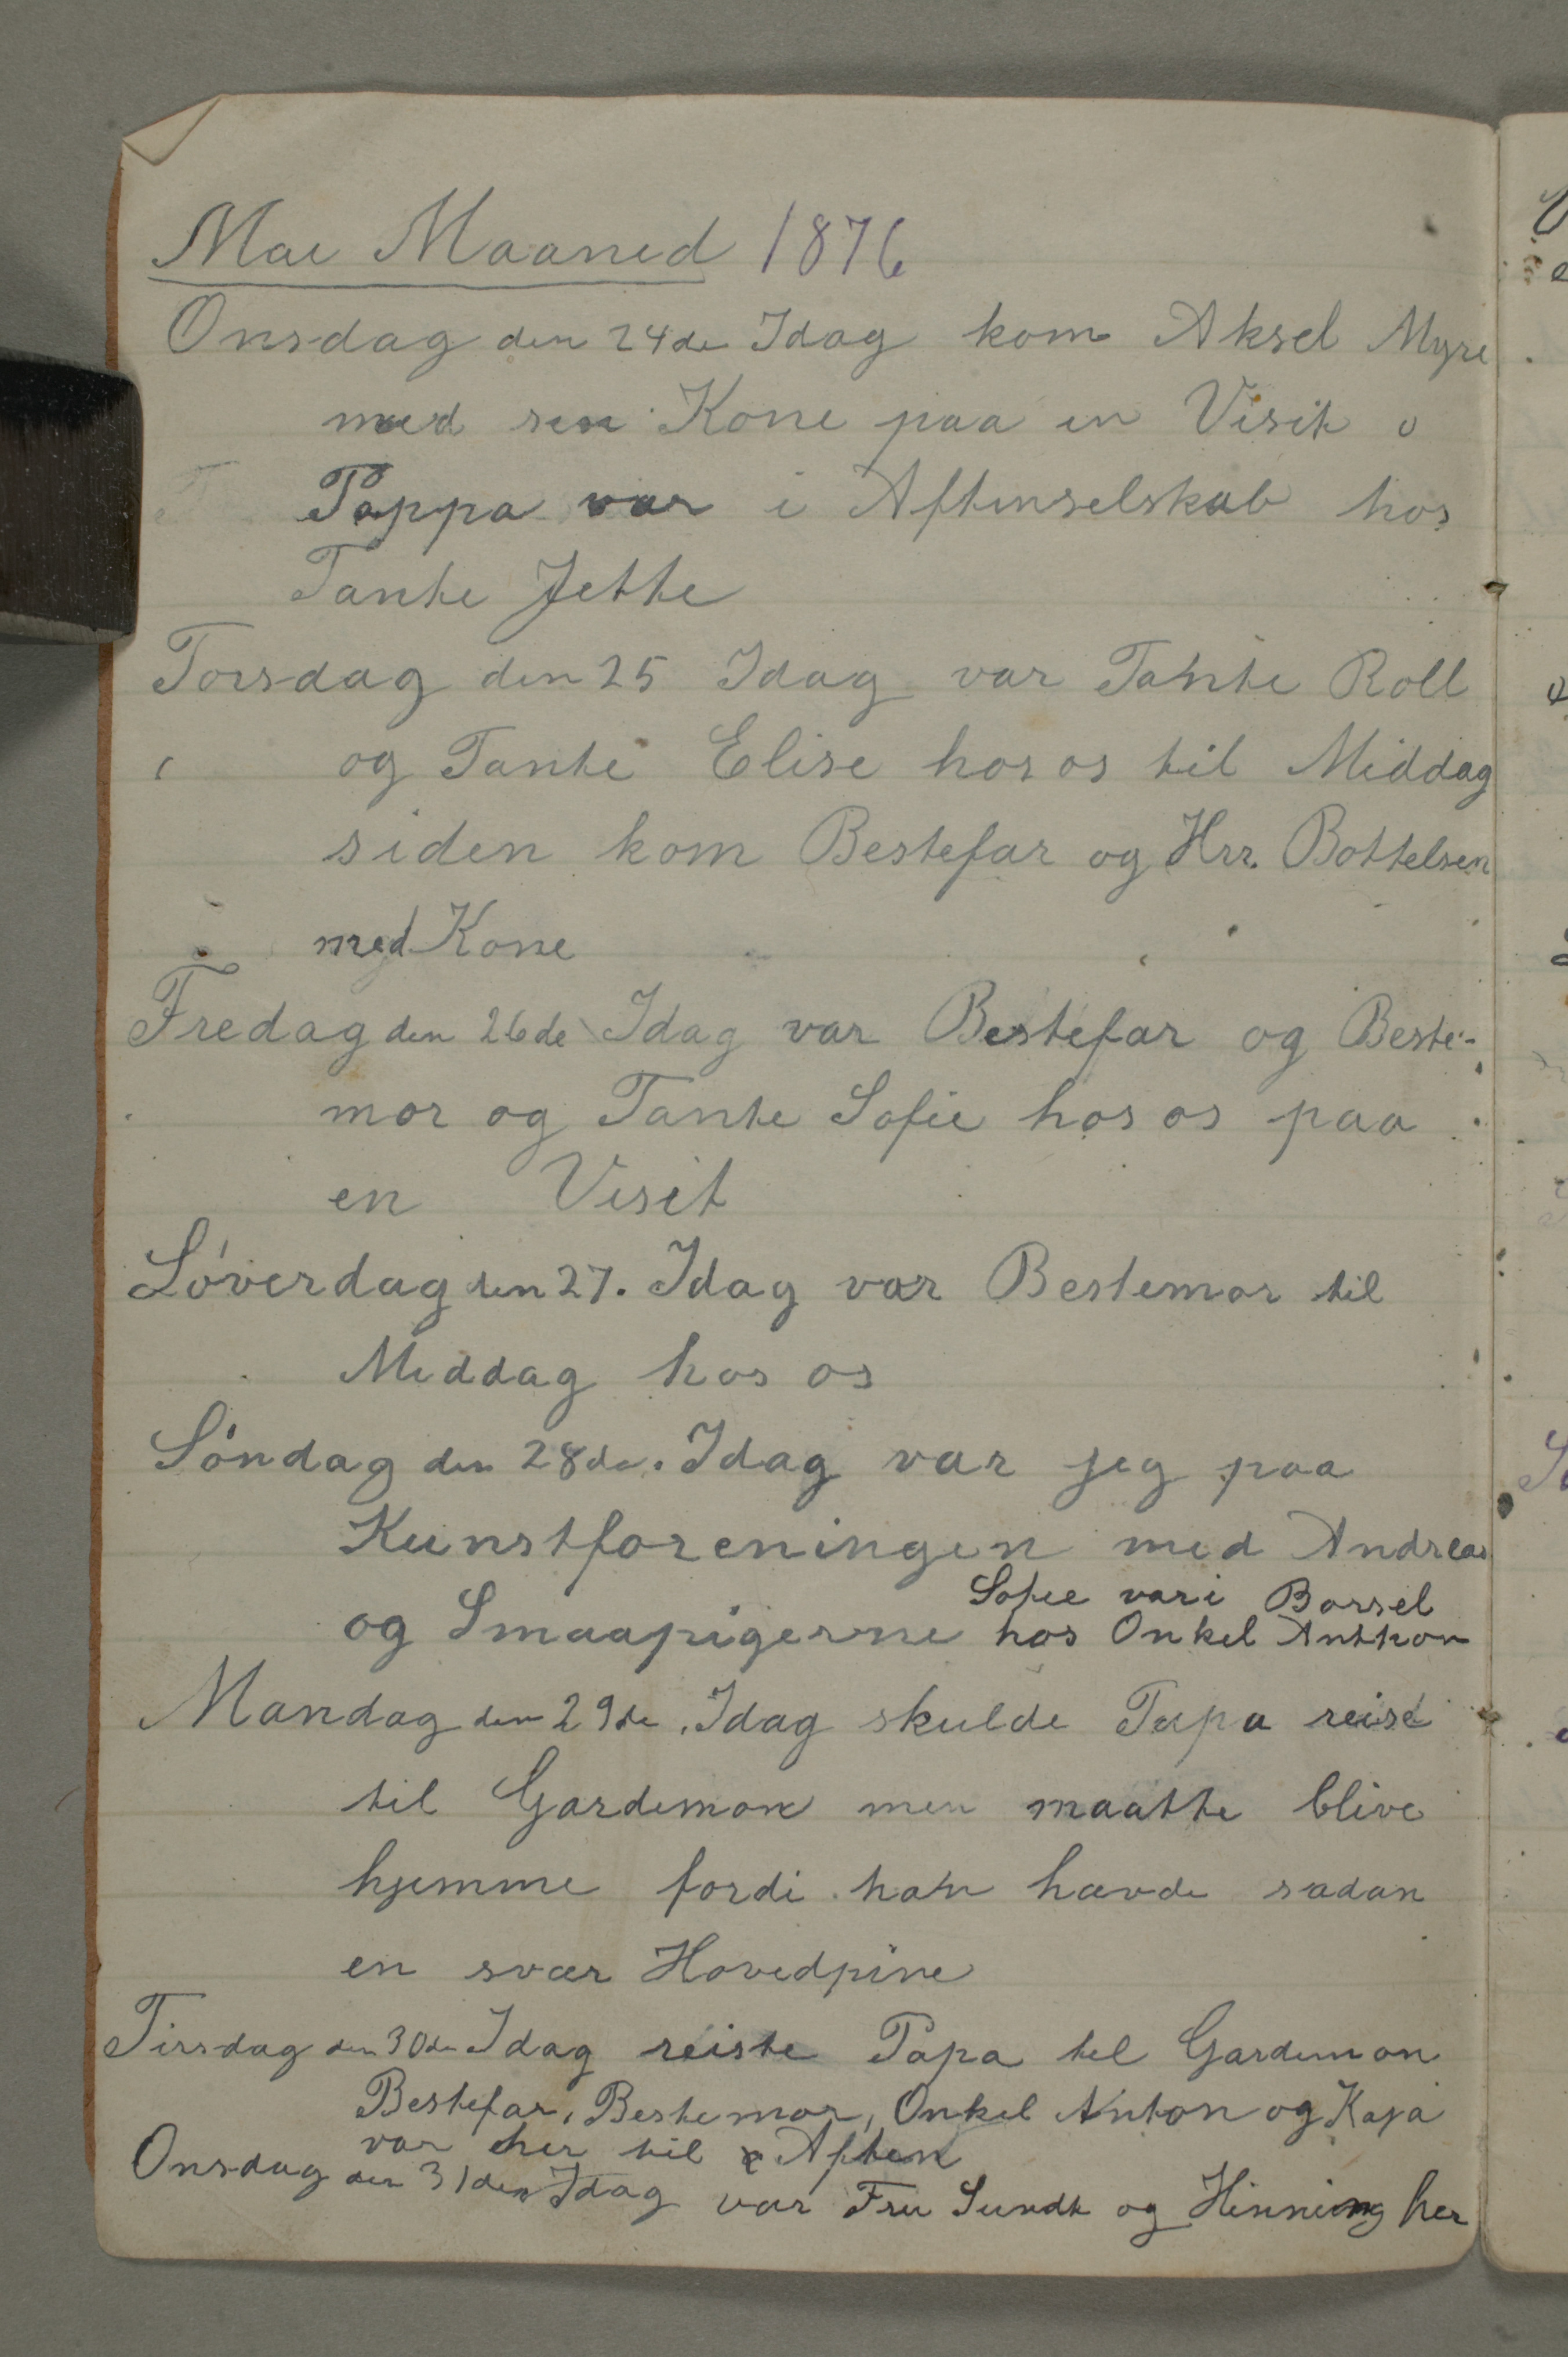 Mai Maaned 1876
Onsdag den 24de Idag kom Aksel Myre
med sin Kone paa en Visit
Pappa var i Aftenselskab hos
Tante Jette
Torsdag den 25 Idag var Tante Roll
og Tante Elise hos os til Middag
siden kom Bestefar og Hrr. Bottelsen
med Kone
Fredag den 26de Idag var Bestefar og Beste-
mor og Tante Sofie hos os paa
en Visit
Löverdag den 27. Idag var Bestemor til
Middag hos os
Söndag den 28de. Idag var jeg paa
Kunstforeningen med Andreas
og Smaapigerne Sofie var i Barsel
hos Onkel Anthon
Mandag den 29de. Idag skulde Papa reise
til Gardemon men maatte blive
hjemme fordi han havde sadan
en svær Hovedpine
Tirsdag den 30de Idag reiste Papa til Gardemon
Bestefar, Bestemor, Onkel Anton og Kaja
var her til Aften
Onsdag den 31den Idag var Fru Sundt og Hinning her